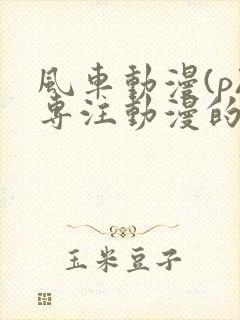 風車動漫(p
專注動漫的
玉米豆子